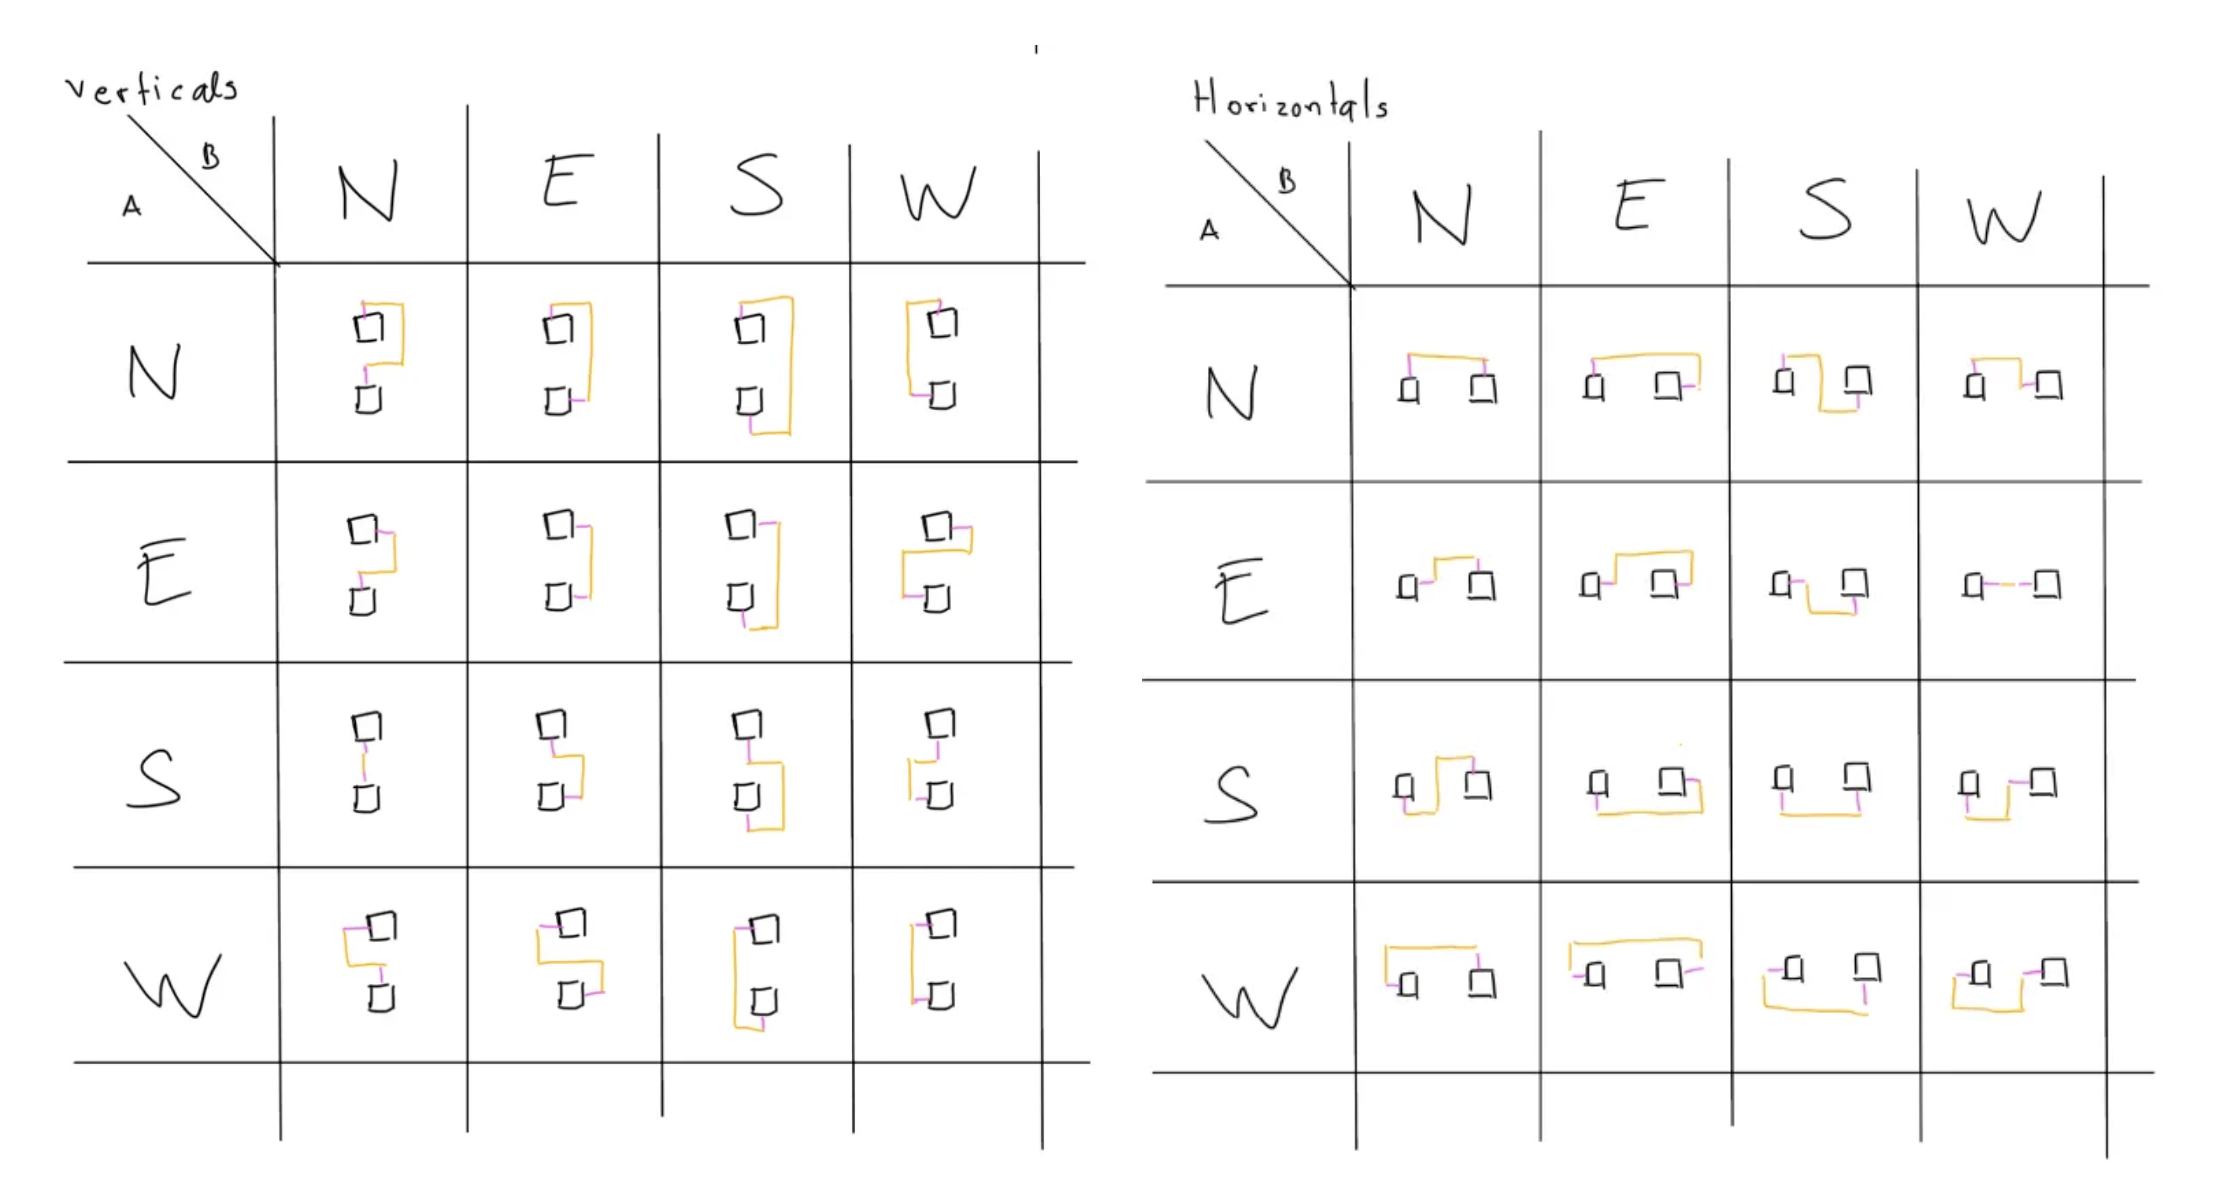 Verticals
B
A
N E S W
N
E
S
W
Horizontals
B
A
N E S W
N
E
S
W